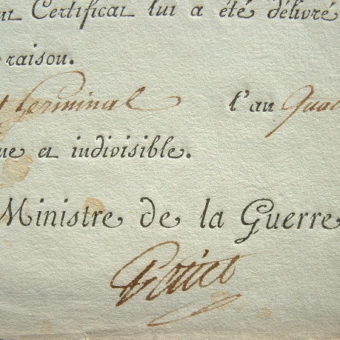 nt Certificat lui a été délivré
raison.
t Germinal l'an Quat
ue et indivisible.
Ministre de la Guerre
Petiet